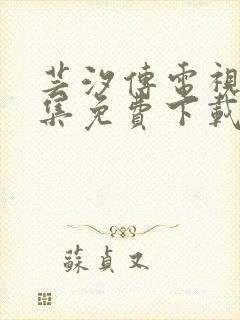 芸汐傳電視
集免費下載
蘇貞又